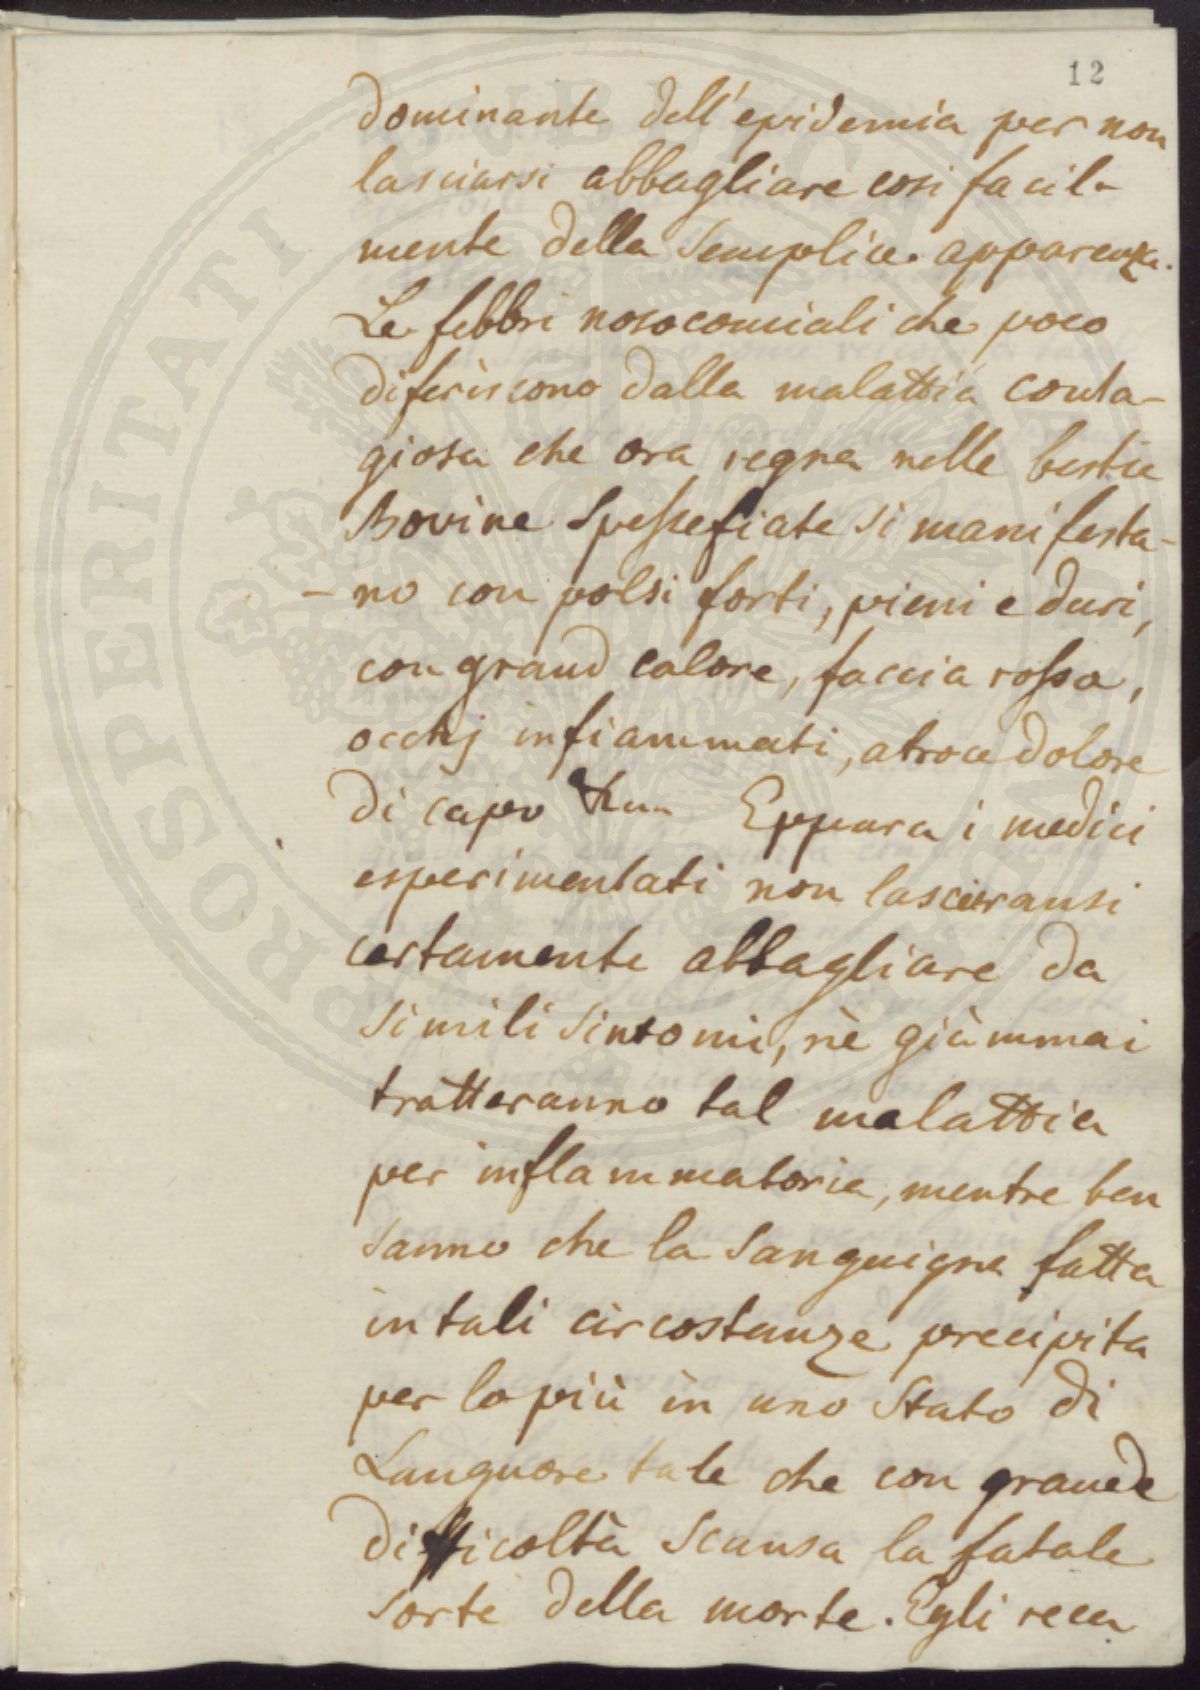 12
dominante dell'epidemia per non
lasciarsi abbagliare così facil-
mente della semplice apparenza.
Le febbri nosocomiali che poco
diferiscono dalla malattia conta-
giosa che ora regna nelle bestie
Bovine spessefiate si manifesta-
- no con polsi forti, pieni e duri,
con grand calore, faccia rossa,
occhj infiammati, atroce dolore
di capo Eppure i medici
esperimentati non lascieransi
certamente abbagliare da
simili sintomi, nè giàmmai
tratteranno tal malattia
per inflammatoria, mentre ben
sanno che la sanguigna fatta
in tali circostanze precipita
per lo più in uno stato di
Languore tale che con grande
difficoltà scansa la fatale
sorte della morte. Egli reca
PROSPERITATI PUBLICAE